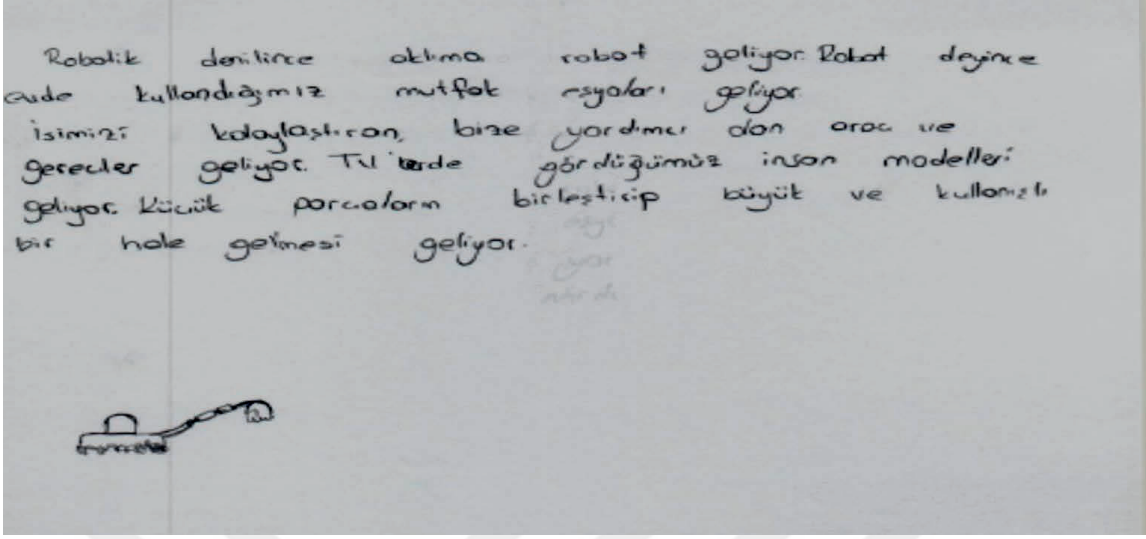 Robotik denilince aklıma robot geliyor. Robot deyince
evde kullandığımız mutfak esyaları geliyor
isimizi kolaylaştıran, bize yardımcı olan arac ve
gerecler geliyor. TV'lerde gördüğümüz insan modelleri
geliyor. Kücük parcaların birleştirip büyük ve kullanışlı
bir hale gelmesi geliyor.